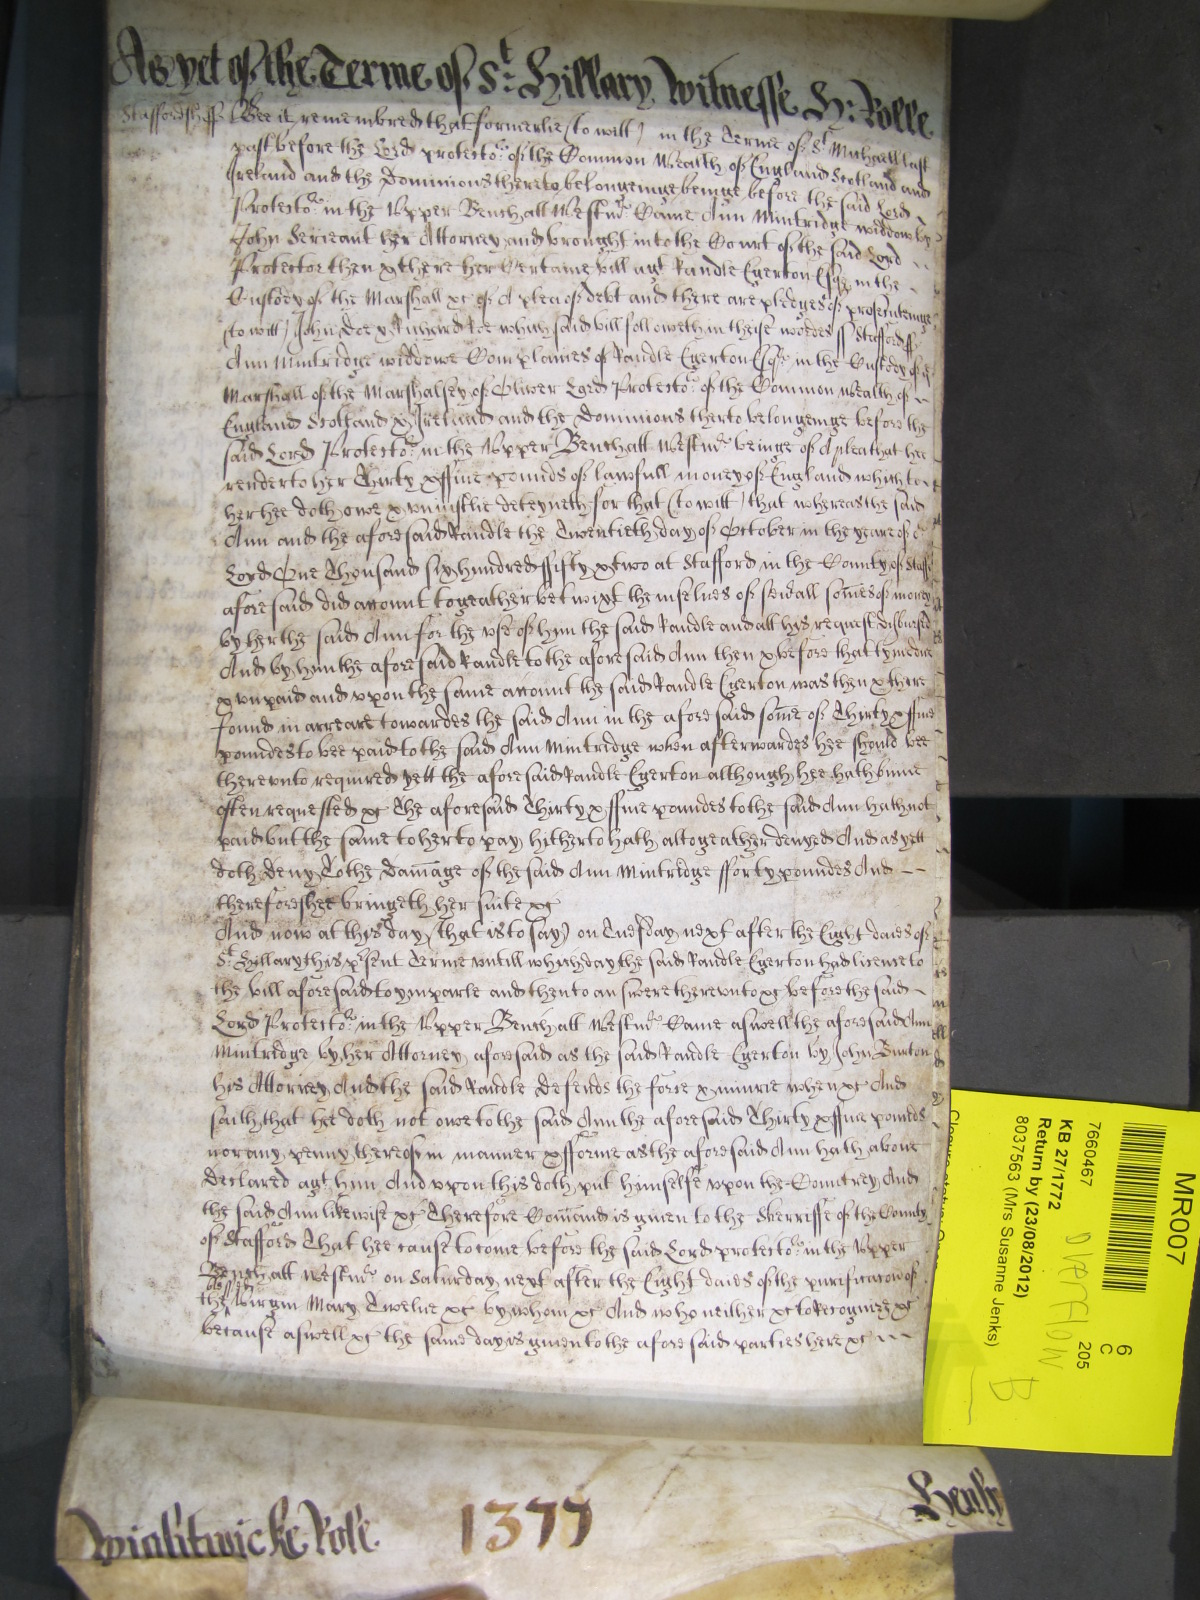 As yet of the Terme of St. Hillary Witnesse H: Rolle
Staffordsh ss Bee it remembred that formerlie (to witt) in the Terme of St Michaell last
past before the Lord protector of the Common Wealth of England Scotland and
Ireland and the Dominions thereto belongeinge beinge before the said Lord
Protector in the Upper Bench att Westmr Came Ann Mintridge widdow by
John Serieant her Attorney and brought into the Court of the said Lord
Protector then & there her Certaine bill agt Randle Egerton Esqr in the
Custody of the Marshall &c of A plea of debt and there are pledges of prosecuteinge
(to witt) John Doe & Richard Roe which said bill followeth in theise wordes ss Stafford ss
Ann Mintridge widdowe Complaines of Randle Egerton Esqr in the Custody of ye
Marshall of the Marshalsey of Oliver Lord Protector of the Common Wealth of
England Scotland & Ireland and the Dominions therto belongeinge before the
said Lord Protector in the Upper Bench att Westmr beinge of A plea that hee
render to her Thirty & ffiue pounds of lawfull money of England which to
her hee doth owe & uniustlie deteyneth for that (to witt) that whereas the said
Ann and the aforesaid Randle the Twentieth day of October in the yeare of or
Lord One Thousand six hundred ffifty & two at Stafford in the County of Staff
aforesaid did account togeather betwixt themselues of seuall somes of money
by her the said Ann for the vse of him the said Randle and att his request disbursed
And by him the aforesaid Randle to the aforesaid Ann then & before that tyme due
& vnpaid and vpon the same account the said Randle Egerton was then & there
found in arreare towardes the said Ann in the aforesaid some of Thirty & ffiue
poundes to bee paid to the said Ann Mintridge when afterwardes hee should bee
therevnto required yett the aforesaid Randle Egerton although hee hath binne
often requested &c The aforesaid Thirty & ffiue poundes to the said Ann hath not
paid but the same to her to pay hitherto hath altogeather denyed And as yett
doth deny To the Damage of the said Ann Mintridge fforty poundes And
therefore shee bringeth her suite &c
And now at this day (that is to say) on Tuesday next after the Eight daies of
St Hillary this psent Terme untill which day the said Randle Egerton had licence to
the bill aforesaid to ymparle and then to answere therevnto &c before the said
Lord Protector in the Upper Bench att Westmr Came aswell the aforesaid Ann
Mintridge by her Attorney aforesaid as the said Randle Egerton by John Burton
his Attorney And the said Randle defends the force & iniurie when &c And
saith that he doth not owe to the said Ann the aforesaid Thirty & ffiue pounds
nor any penny thereof in manner & fforme as the aforesaid Ann hath aboue
declared agt him And vpon this doth put himselfe vpon the Countrey And
the said Ann likewise &c Therefore Comand is giuen to the Sherriffe of the County
of Stafford That hee cause to come before the said Lord protector in the Upper
Bench att Westmr on Saturday next after the Eight daies of the purificacon of
the blessed Virgin Mary Twelue &c by whom &c And who neither &c to Recognize &c
because aswell &c the same day is giuen to the aforesaid parties here &c
Wightwicke Rolle 1377 Henly
MR007
6
C
205
7660467
KB 27/1772
Return by (23/08/2012)
8037563 (Mrs Susanne Jenks)
OVERFLOW
B